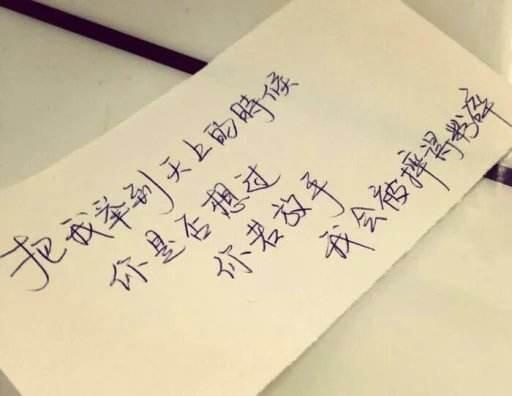 把我举到天上的時候
你是否想过
你若放手
我会被摔得粉碎